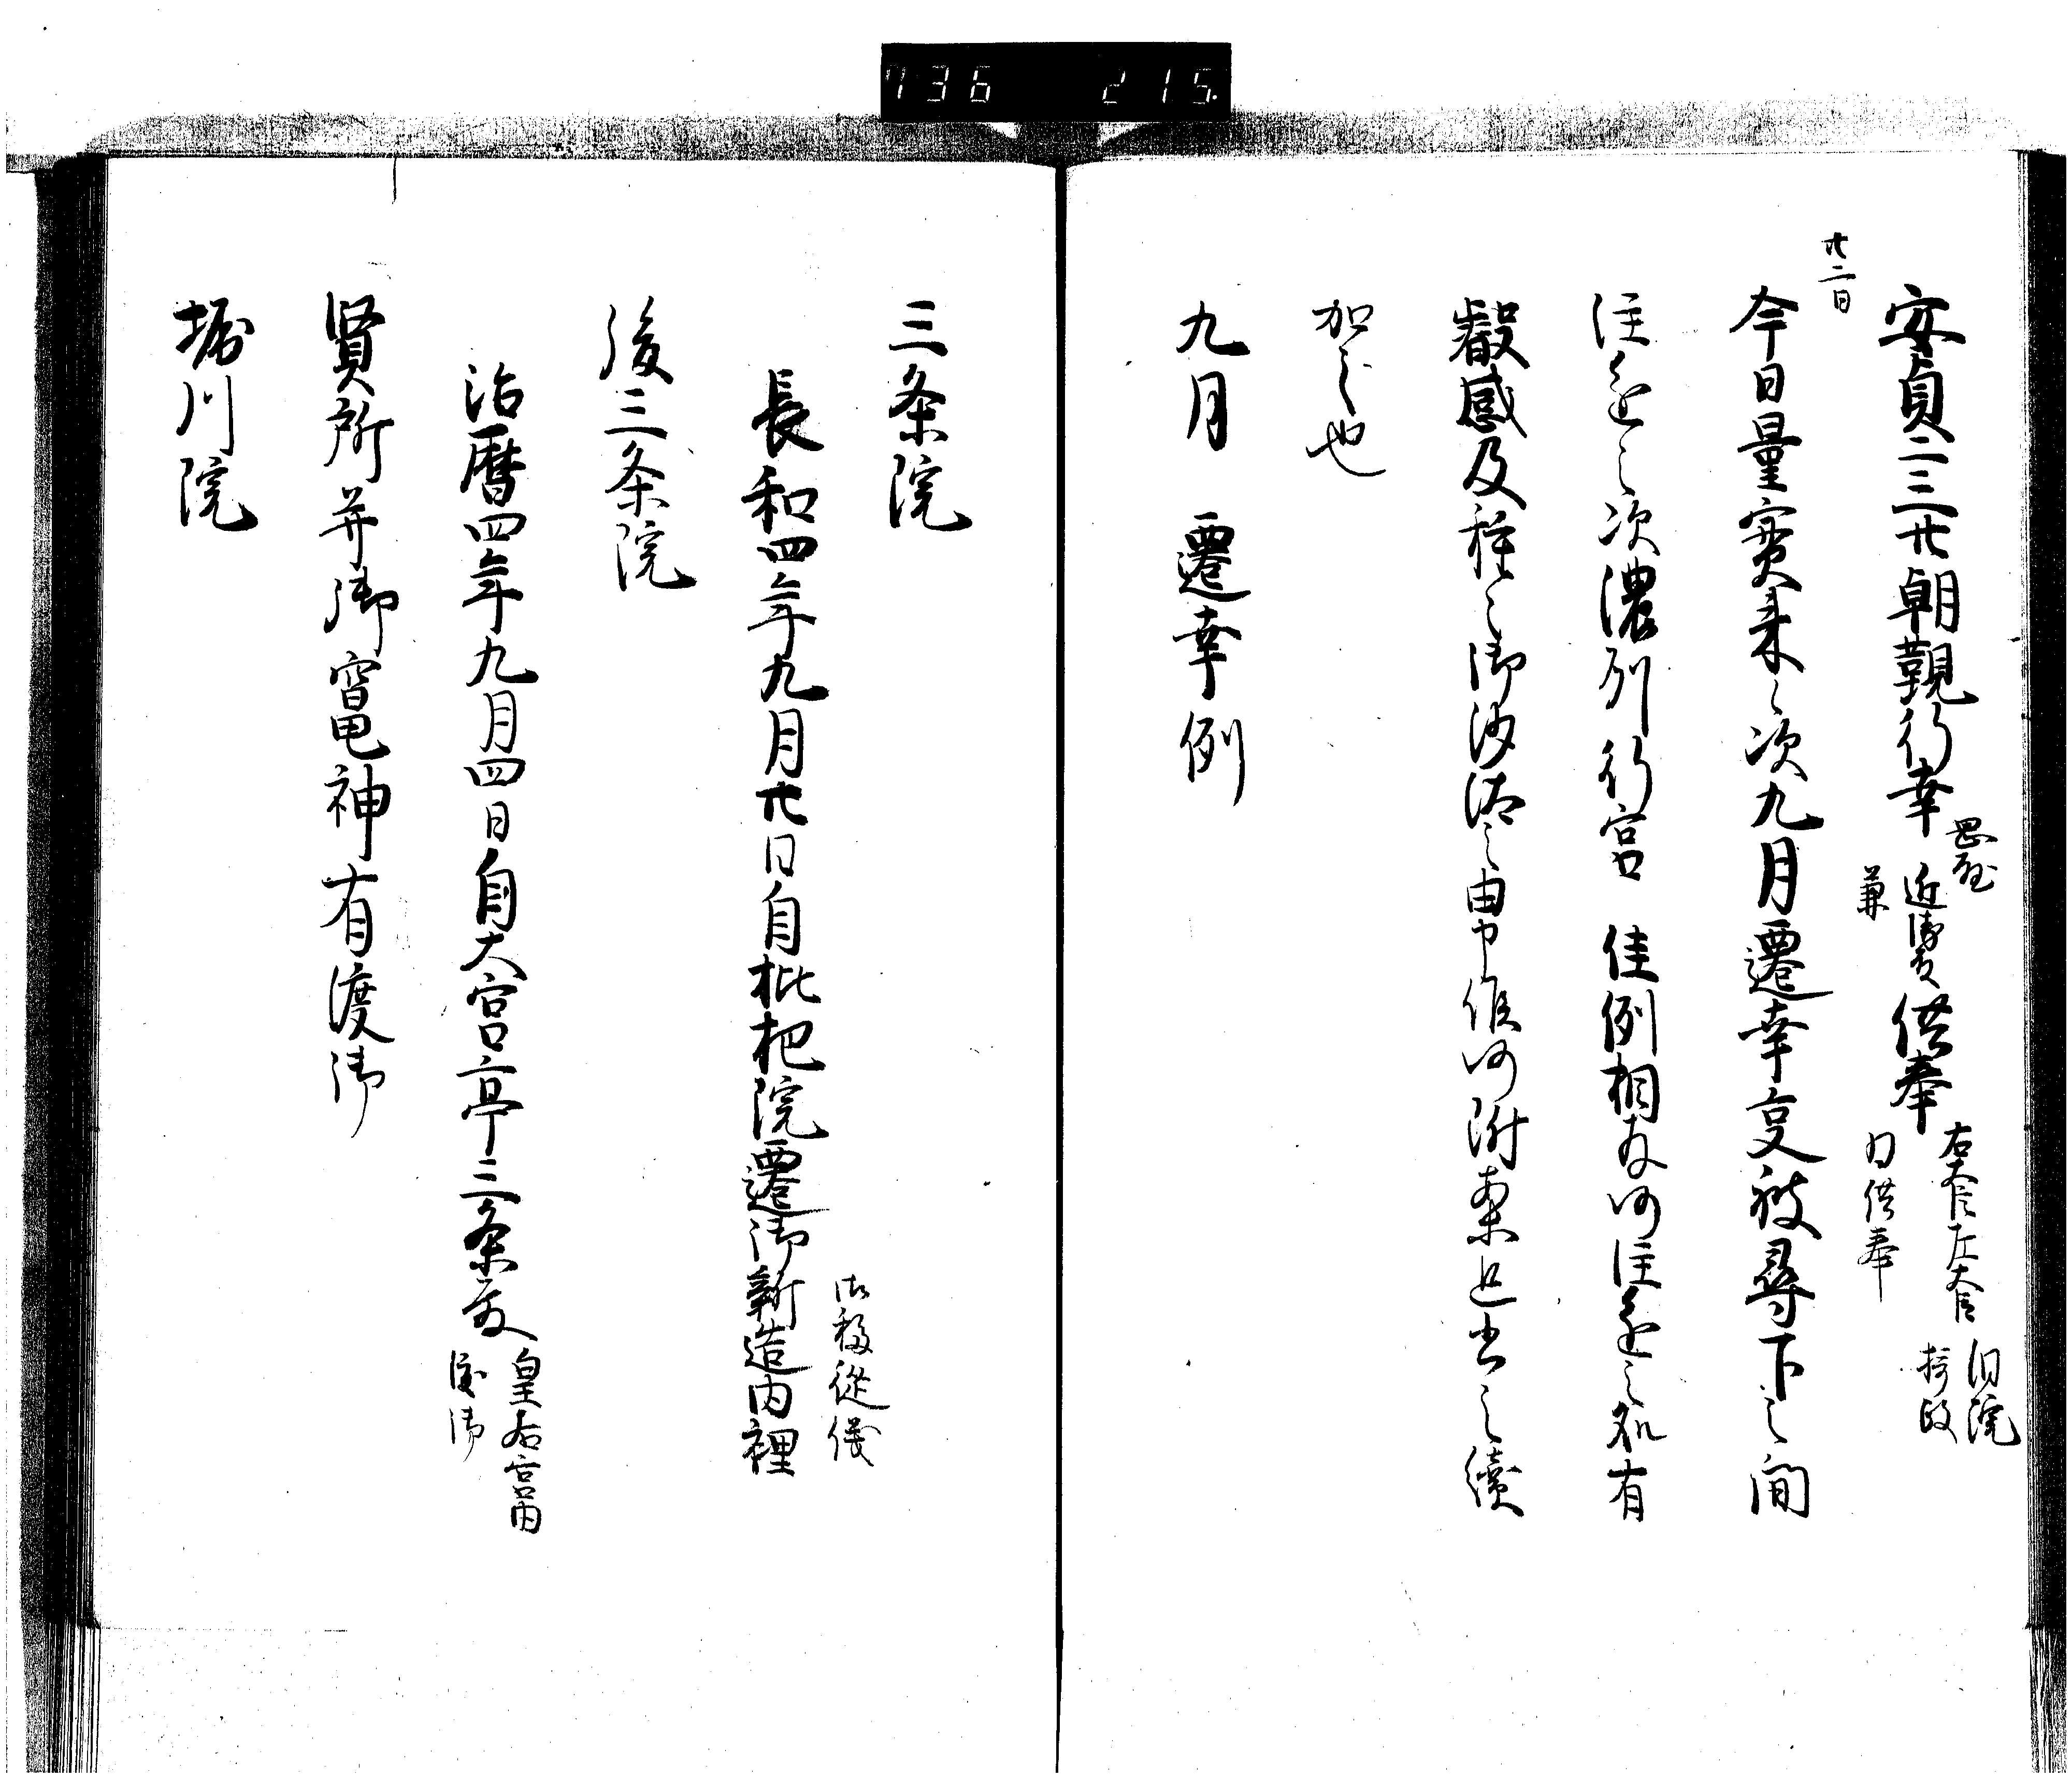 736 215
安貞二三廿朝覲行幸
兼
供奉
右大臣左大臣
日供奉
旧院
摂政
廿二日
今日量実来之次九月遷幸事被尋下之間
注進之次濃州行宮佳例相存仍注進之処有
叡感及種々御沙汰之由申候仍附案進出之続
加之也
九月 遷幸例
三条院
長和四年九月廿日自枇杷院遷御新造内裡
御移従儀
後三条院
治暦四年九月四日自大宮亭三条殿
皇后宮同
渡御
賢所并御竈神有渡御
堀川院